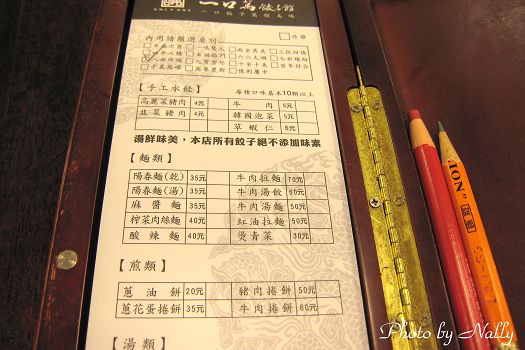 ONLY ONE 一口萬餃子館
一口餃子萬般美味
內用請圈選桌別
外帶
【手工水餃】 每種口味基本10顆以上
高麗菜豬肉 4元 牛肉 5元
韭菜豬肉 4元 韓國泡菜 5元
草蝦仁 6元
湯鮮味美,本店所有餃子絕不添加味素
【麵類】
陽春麵(乾) 35元 牛肉拉麵 70元
陽春麵(湯) 35元 牛肉湯餃 60元
麻醬麵 35元 牛肉湯麵 50元
榨菜肉絲麵 40元 紅油拉麵 50元
酸辣麵 40元 燙青菜 30元
【煎類】
蔥油餅 20元 豬肉捲餅 50元
蔥花蛋捲餅 35元 牛肉捲餅 60元
【湯類】
Photo by Nally